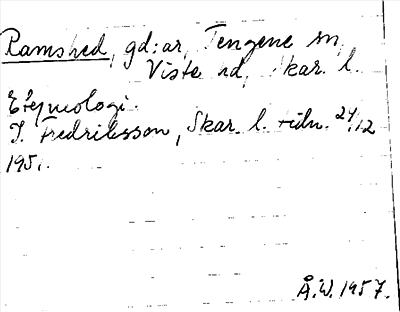 Ramshed, gd:ar, Tengene sn,
Viste hd, Skar. l.
Etymologi.
I. Fredriksson, Skar. l. tidn. 24/12
195.
Å.W. 1957.